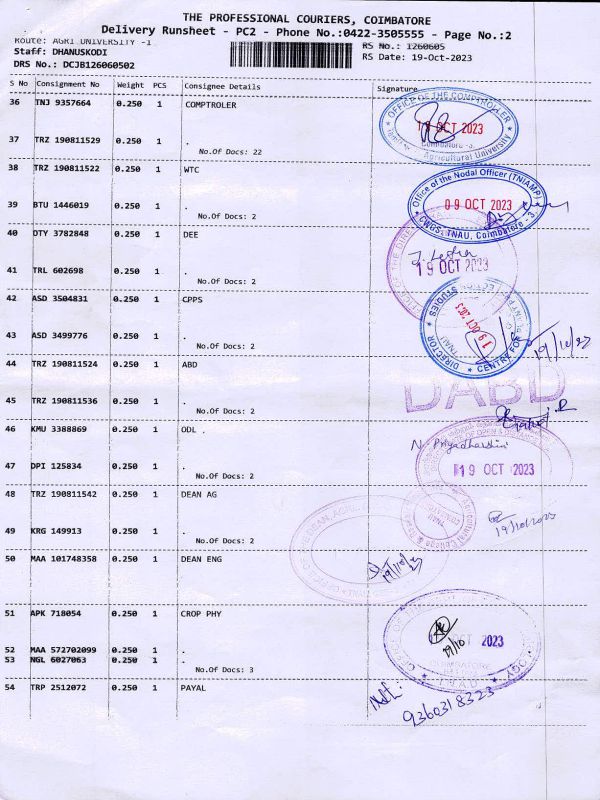 THE PROFESSIONAL COURIERS, COIMBATORE
Delivery Runsheet - PC2 - Phone No.:0422-3505555 - Page No.:2
Route: AGRI UNIVERSITY -I RS No.: 1260605
Staff: DHANUSKODI RS Date: 19-Oct-2023
DRS No.: DCJB126060502
S No Consignment No Weight PCS Consignee Details Signature
36 TNJ 9357664 0.250 1 COMPTROLER
OFFICE OF THE COMPTROLER
19 OCT 2023
Coimbatore -3.
Agricultural University
37 TRZ 190811529 0.250 1 .
No.Of Docs: 22
38 TRZ 190811522 0.250 1 WTC
Office of the Nodal Officer (TNIAMP)
09 OCT 2023
CWGS, TNAU, Coimbatore - 3.
39 BTU 1446019 0.250 1 .
No.Of Docs: 2
40 DTY 3782848 0.250 1 DEE
19 OCT 2023
41 TRL 602698 0.250 1 .
No.Of Docs: 2
42 ASD 3504831 0.250 1 CPPS
DIRECTOR
CENTRE FOR
STUDIES
TNAU
19 OCT 2023
19/10/23
43 ASD 3499776 0.250 1 .
No.Of Docs: 2
44 TRZ 190811524 0.250 1 ABD
DABD
45 TRZ 190811536 0.250 1 .
No.Of Docs: 2
46 KMU 3388869 0.250 1 ODL .
N. Priyadharshini
19 OCT 2023
47 DPI 125834 0.250 1 .
No.Of Docs: 2
48 TRZ 190811542 0.250 1 DEAN AG
19/10/2023
49 KRG 149913 0.250 1 .
No.Of Docs: 2
50 MAA 101748358 0.250 1 DEAN ENG
19/10/23
51 APK 718054 0.250 1 CROP PHY
OCT 2023
19/10
COIMBATORE
52 MAA 572702099 0.250 1 .
53 NGL 6027063 0.250 1 .
No.Of Docs: 3
54 TRP 2512072 0.250 1 PAYAL
9360318323